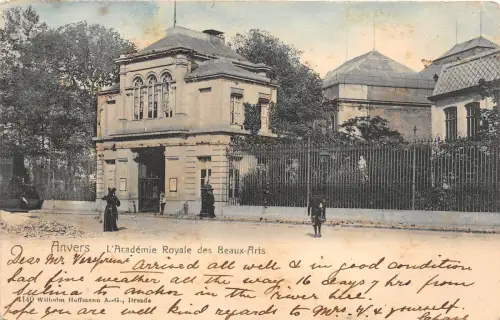 Anvers L'Académie Royale des Beaux-Arts
Dear Mr Verspreeuw Arrived all well & in good condition
had fine weather all the way 16 days 7 hrs from
Sulina to anchor in the river here.
4140 Wilhelm Hoffmann A.-G., Dresde
hope you are well kind regards to Mrs. V & yourself